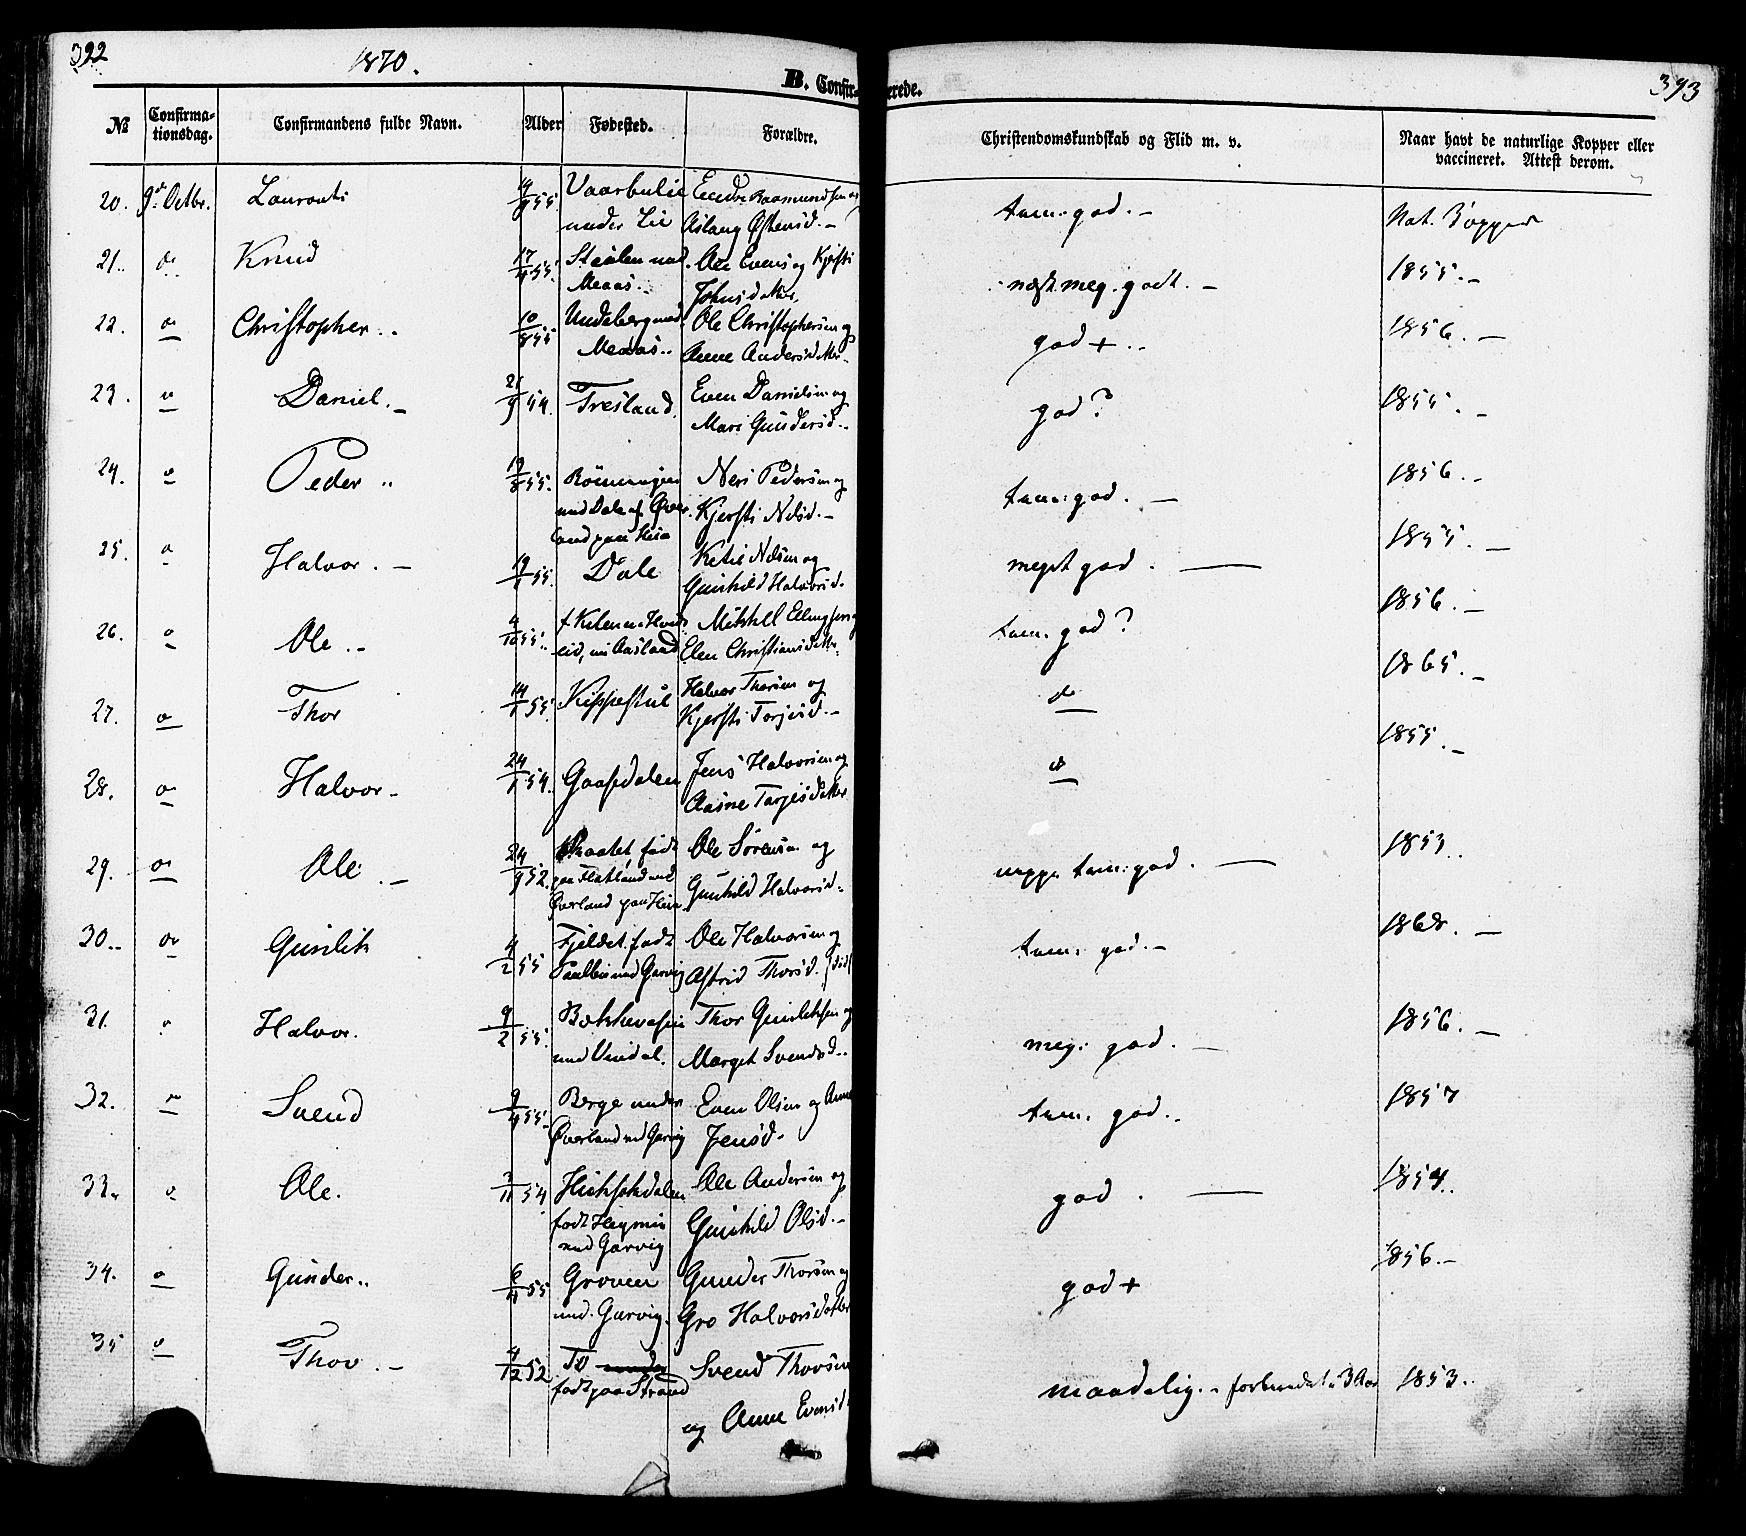 322
1870.
B. Confir-
merede.
393
№
Confirma-
tionsdag.
Confirmandens fulde Navn.
Alder
Fødested.
Forældre.
Christendomskundskab og Flid m. v.
Naar havt de naturlige Kopper eller
vaccineret. Attest derom.
20. 9de Octbr. Laurants 14/9 55. Vaarbulie
under Lie
Aslaug Østensd.
tem: god. Nat. Kopper
21. do Knud 17/9 55. Ole Evens og Kjersti
Meaas. Johnsdatter.
næst. meg. godt. 1855.
22. do Christopher 10/8 55 Undeberg ned.
Meaas.
Ole Christophersen og
Anne Andersdatter
god + 1856.
23. do Daniel. 21/9 54. Tresland.
Even Danielsen og
Mari Gundersd.
god? 1855.
24. do Peder 19/8 55. Rönningen
ned Dale af Över-
land paa Heia
Neri Pedersen og
Kjersti Nilsd.
tem: god. 1856.
25. do Halvor. 19/1 55. Dale
Ketil Nilsen og
Gunhild Halvorsd.
meget god. 1855.
26. do Ole 4/10 55. f Kilen i Hvide-
eid, nu Aasland
Mikkel Ellingsen og
Elen Christiansdatter
tem. god? 1856.
27. do Thor 14/1 55. Kippestul
Halvor Thorsen og
Kjersti Torjusd.
do 1865.
28. do Halvor 24/1 54. Gaasedalen
Jens Halvorsen og
Aasne Tarjesdatter
do 1855.
29. do Ole 24/9 52. født
paa Flatland ned
Överland paa Heia
Ole Sörensen og
Gunhild Halvorsd.
neppe tem: god. 1853.
30. do Gunlik 4/2 55 Fjeldet, født
Paulbu ned Garvig
Ole Halvorsen og
Astrid Thorsd.
tem: god. 1868.
31. do Halvor. 9/2 55. Bekkevasen
ned Vindal.
Thor Gunleksen og
Marget Svendsd.
meg: god. 1856.
32. do Svend 9/4 55. Berge under
Överland ned Garvig
Even Olsen og Anne
Jensd.
tem. god. 1857
33. do Ole. 3/11 54
født Heymin
ned Garvig
Ole Andersen og
Gunhild Olsd.
god. 1854.
34. do Gunder 6/4 55 Groven
ned. Garvig.
Gunder Thorsen og
Gro Halvorsdatter
god + 1856.
35 do Thov. 4/12 52 Tv under
født paa Strand
Svend Thovsen
og Anne Evensd.
maadelig. forberedet i 3 Aar 1853.